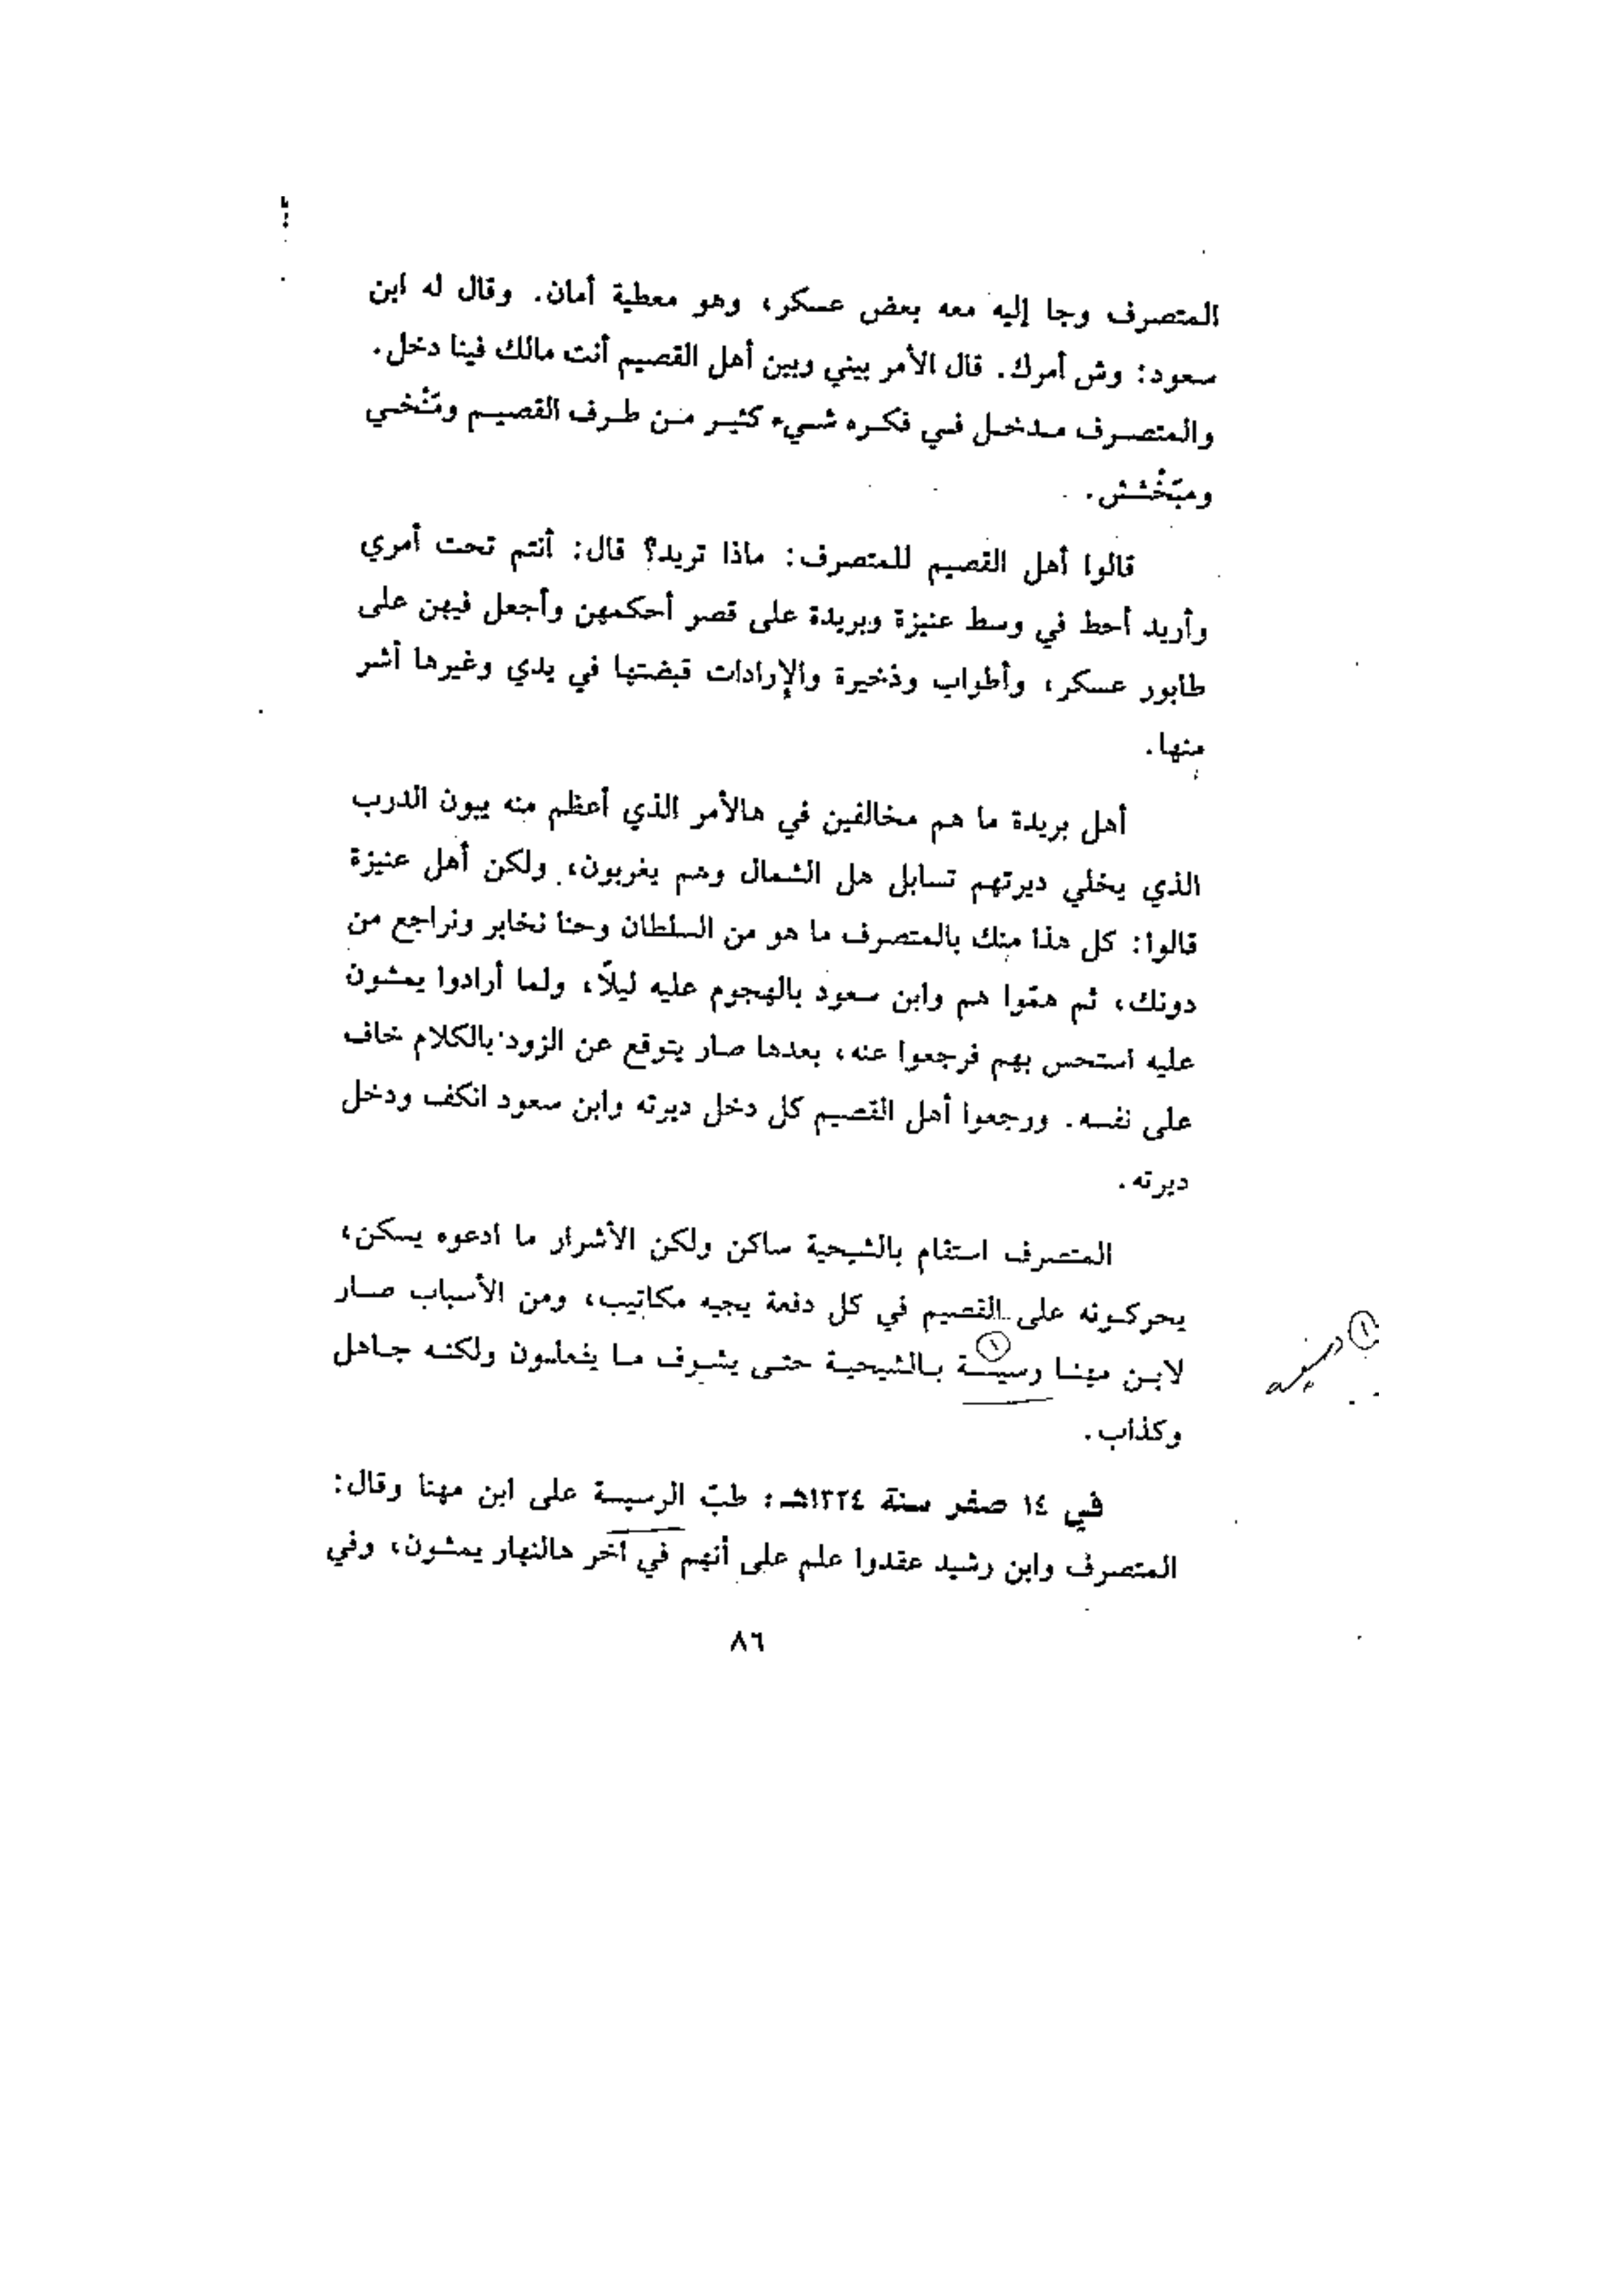 المتصرف وجا إليه معه بعض عسكر، وهو معطية أمان. وقال له ابن
سعود: وش أمرك. قال الأمر بيني وبين أهل القصيم أنت مالك فينا دخل.
والمتصرف مدخل في فكره شيء كثير من طرف القصيم ومَنْخي
ومبَخْشش.
قالوا أهل القصيم للمتصرف: ماذا تريد؟ قال: أنتم تحت أمري
وأريد أحط في وسط عنيزة وبريدة على قصر أحكمهن وأجعل فيهن على
طابور عسكر، وأطواب وذخيرة والإرادات قبضتها في يدي وغيرها أشر
منها.
أهل بريدة ما هم مخالفين في هالأمر الذي أعظم منه يبون الدرب
الذي يخلي ديرتهم تسابل هل الشمال وهم يغربون، ولكن أهل عنيزة
قالوا: كل هذا منك بالمتصرف ما هو من السلطان وحنا نخابر ونراجع من
دونك، ثم همّوا هم وابن سعود بالهجوم عليه ليلاً، ولما أرادوا يمشون
عليه استحس بهم فرجعوا عنه، بعدها صار يتوقع عن الزود بالكلام خاف
على نفسه. ورجعوا أهل القصيم كل دخل ديرته وابن سعود انكف ودخل
ديرته.
المتصرف استقام بالشيحية ساكن ولكن الأشرار ما ادعوه يسكن،
يحركونه على القصيم في كل دفعة يجيه مكاتيب، ومن الأسباب صار
لابن مهنا رسيسة (١) بالشيحية حتى يشوف ما يفعلون ولكنه جاهل
وكذاب.
في ١٤ صفر سنة ١٣٢٤هـ: طبّ الرسيسة على ابن مهنا وقال:
المتصرف وابن رشيد عقدوا علم على أنهم في آخر هالنهار يمشون، وفي
(١)
٨٦